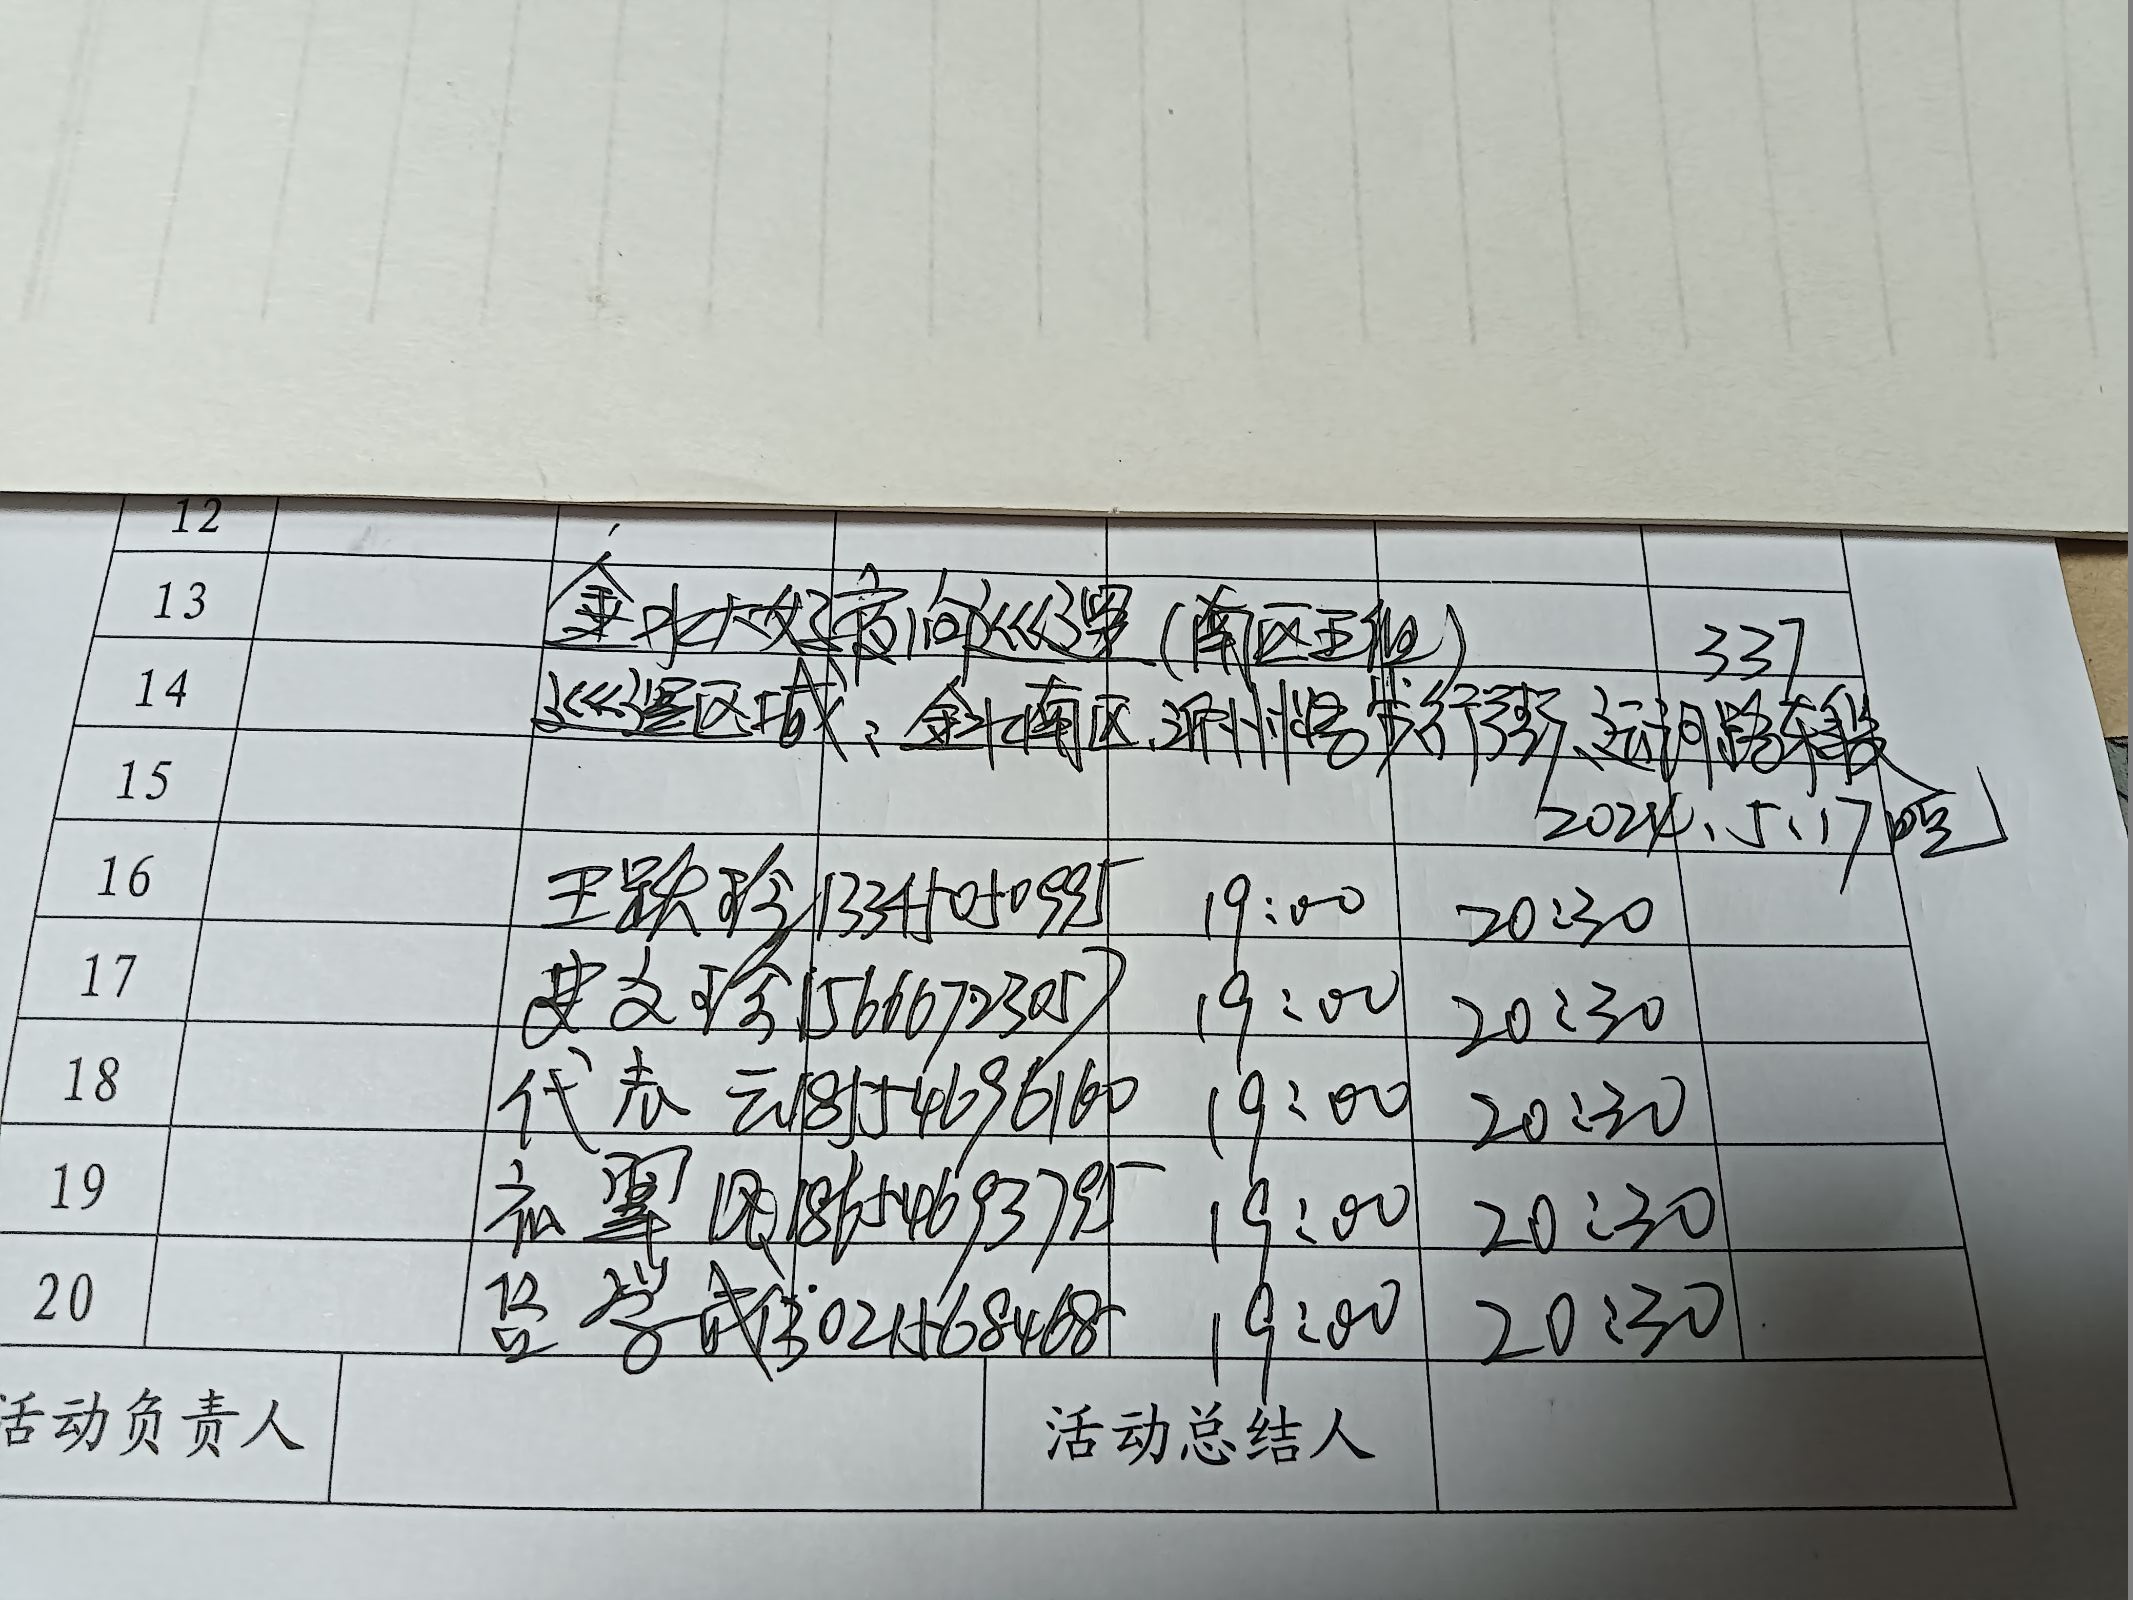 12
13 金水大好夜间巡逻(南区王组) 337
14 巡逻区域:金水南区、沂州路步行街、运河路东段
15 2024.5.17晚
16 王跃珍 13345050995 19:00 20:30
17 史文珍 15666723057 19:00 20:30
18 代志云 18554696160 19:00 20:30
19 18654693795 19:00 20:30
20 吕学成 13021568468 19:00 20:30
活动负责人 活动总结人